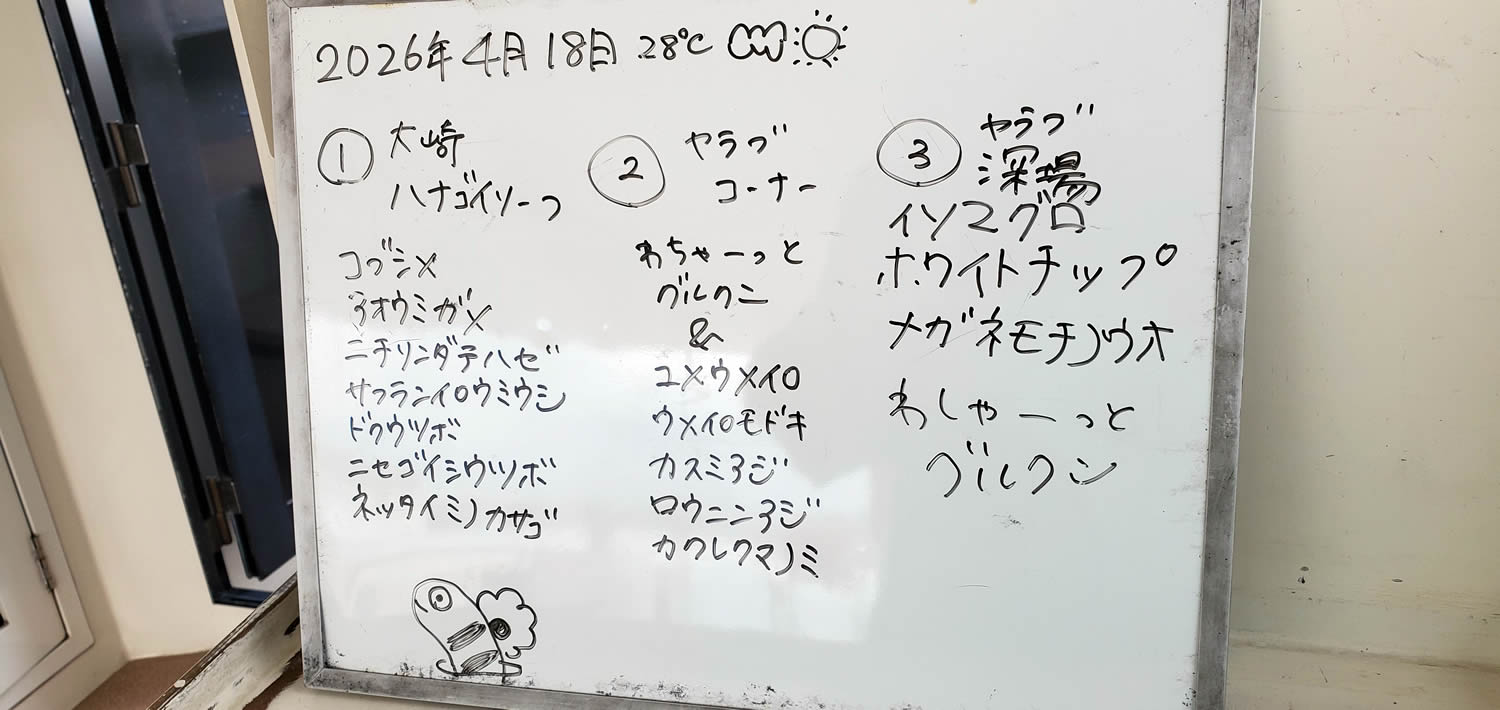 2026年4月18日 28℃
① 大崎
ハナゴイリーフ
コブシメ
アオウミガメ
ニチリンダテハゼ
サフランイロウミウシ
ドクウツボ
ニセゴイシウツボ
ネッタイミノカサゴ
② ヤラブ
コーナー
わちゃーっと
グルクン
&
ユメウメイロ
ウメイロモドキ
カスミアジ
ロウニンアジ
カクレクマノミ
③ ヤラブ
深場
イソマグロ
ホワイトチップ
メガネモチノウオ
わしゃーっと
グルクン